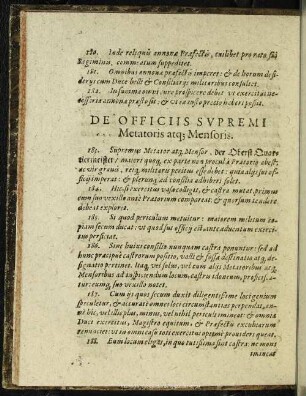 180. Inde reliquis annonæ Præfectis, cuilibet pro rata sui
Regiminis, commeatum suppeditet.
181. Omnibus annonæ præfectis imperet: & de horum desiderijs cum Duce belli & Consiliarijs militaribus consulet.
182. In summa omni, ope prospicere debet ut exercitui necessaria annona præsto sit: & ut ea iusto pretio haberi possit.
DE OFFICIIS SVPREMI
Metatoris atq; Mensoris.
183. Supremus Metator atq; Mensor, der Oberst Quar-
tiermeister/ maxime quoq; ex parte non procul à Prætorio abest:
ac vir gravis, reiq; militaris peritus esse debet: quia alijs suo
officij imperat: & plerunq; ad consilia adhiberi solet.
184. Hic si exercitus vasa collegit, & castra mutat, primus
cum suo vexillo ante Prætorium compareat: & quorsum tendere
debeat exploret.
185. Si quod periculum metuitur: maiorem militum co-
piam secum ducat: ut quid sui officij est ante adventum exer-
citus perficiat.
186. Sine huius consilio nunquam castra ponuntur: sed ad
hunc præcipuè castrorum positio, valli & fossa destinatio atq; de-
signatio pertinet. Itaq; vel solus, vel cum alijs Metatoribus atq;
Mensoribus ad inspiciendum locum, castris idoneum, proficisca-
tur: eumq; suo vexillo notet.
187. Cum ijs quoq; secum duxit diligentissime loci genium
speculetur, & accurate omnes loci circumstantias perpendat, an-
ne hic, vel illic plus, minus, vel nihil periculi immineat: & omnia
Duci exercitus, Magistro equitum, & Præfectis excubiarum
denunciet: ut in omnem casum toti exercitui optime provideri queat.
188. Eum locum eliget, in quo tutissima sint castra: ne mons
immineat